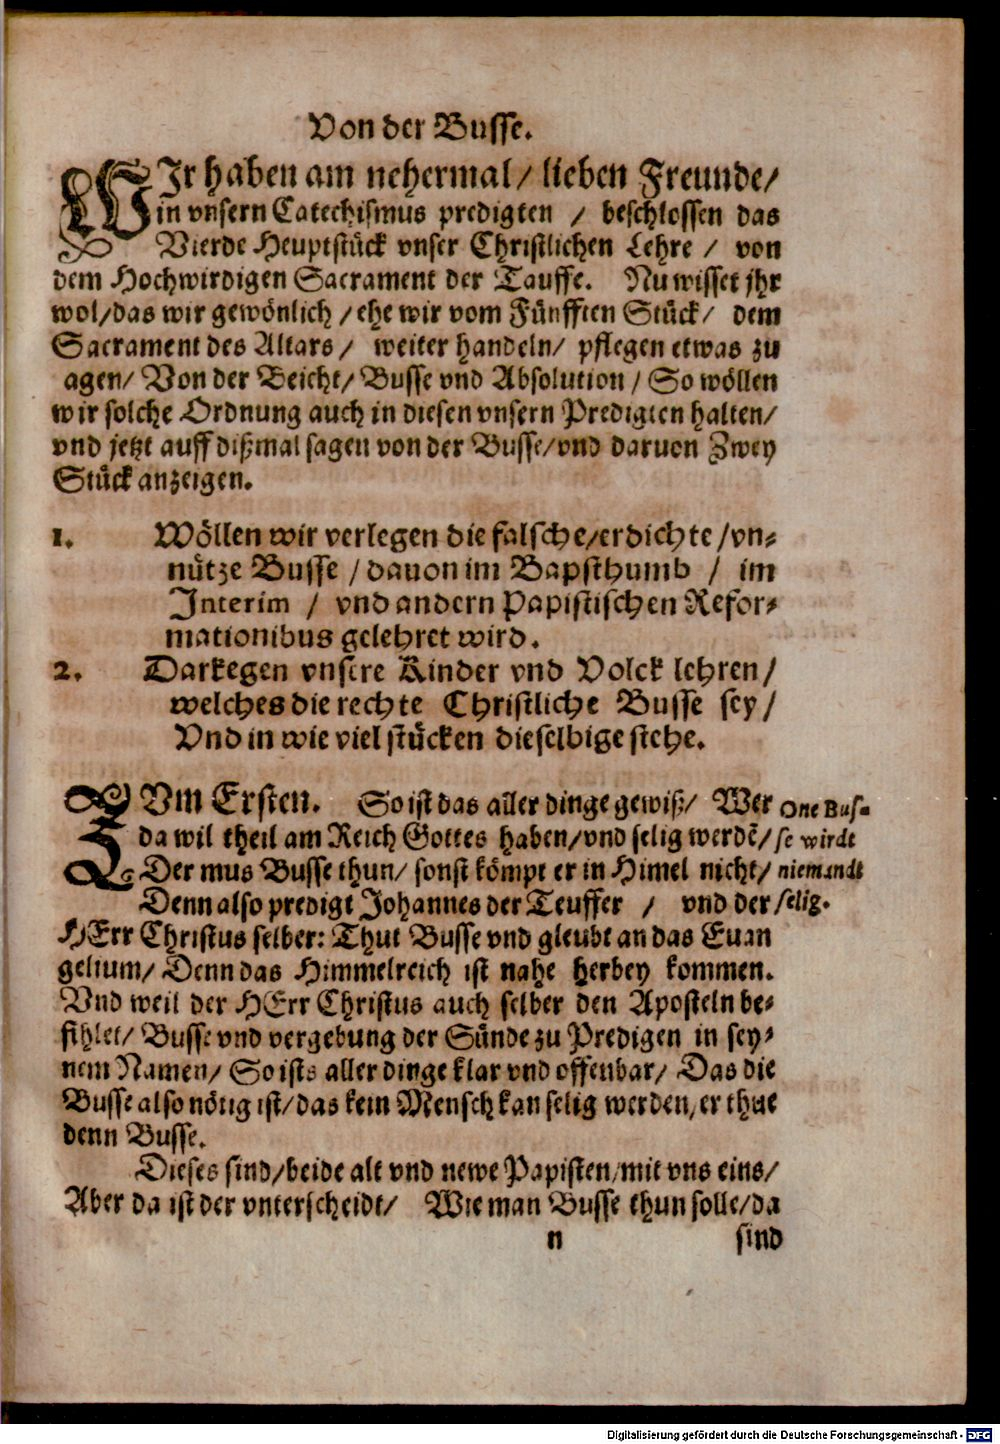 Von der Busse.
WIr haben am nehermal / lieben Freunde /
in vnsern Catechismus predigten / beschlossen das
Vierde Heuptstück vnser Christlichen Lehre / von
dem Hochwirdigen Sacrament der Tauffe. Nu wisset jhr
wol / das wir gewönlich / ehe wir vom Fünfften Stück / dem
Sacrament des Altars / weiter handeln / pflegen etwas zu
agen / Von der Beicht / Busse vnd Absolution / So wöllen
wir solche Ordnung auch in diesen vnsern Predigten halten /
vnd jetzt auff dißmal sagen von der Busse / vnd daruon Zwey
Stück anzeigen.
1. Wöllen wir verlegen die falsche / erdichte / vn-
nütze Busse / dauon im Bapsthumb / im
Interim / vnd andern Papistischen Refor-
mationibus gelehret wird.
2. Darkegen vnsere Kinder vnd Volck lehren /
welches die rechte Christliche Busse sey /
Vnd in wie viel stücken dieselbige stehe.
ZVm Ersten. So ist das aller dinge gewiß / Wer
da wil theil am Reich Gottes haben / vnd selig werdē /
Der mus Busse thun / sonst kömpt er in Himel nicht /
Denn also predigt Johannes der Teuffer / vnd der
HErr Christus selber: Thut Busse vnd gleubt an das Euan
gelium / Denn das Himmelreich ist nahe herbey kommen.
Vnd weil der HErr Christus auch selber den Aposteln be-
fihlet / Busse vnd vergebung der Sünde zu Predigen in sey-
nem Namen / So ists aller dinge klar vnd offenbar / Das die
Busse also nötig ist / das kein Mensch kan selig werden, er thue
denn Busse.
Dieses sind / beide alt vnd newe Papisten / mit vns eins /
Aber da ist der vnterscheidt / Wie man Busse thun solle / da
n sind
One Bus-
se wirdt
niemandt
selig.
Digitalisierung gefördert durch die Deutsche Forschungsgemeinschaft - DFG